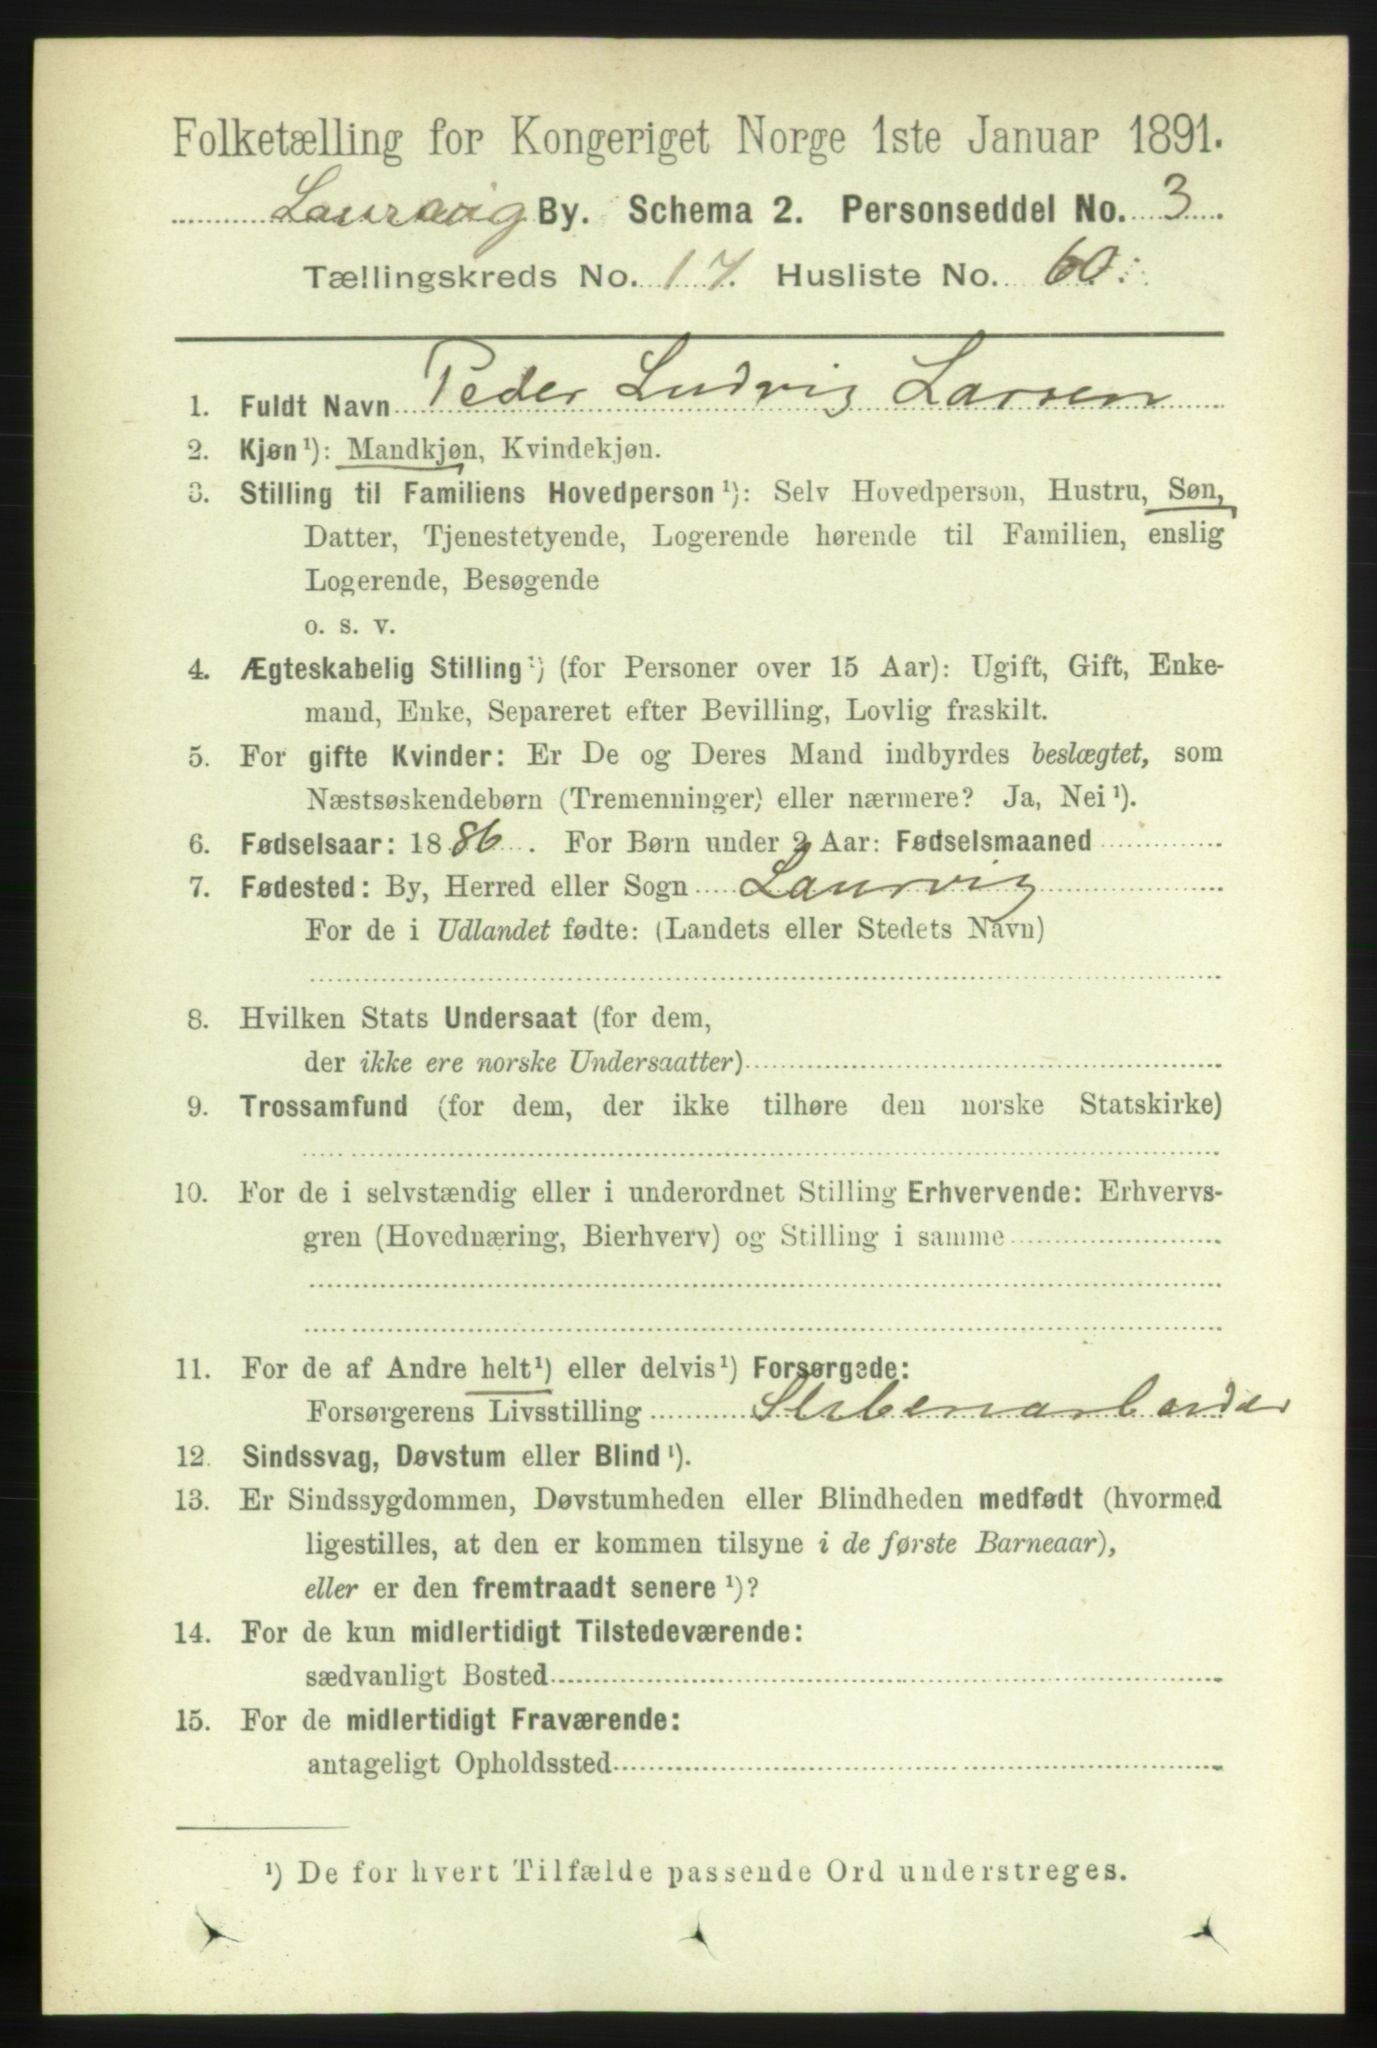 Folketælling for Kongeriget Norge 1ste Januar 1891.
Laurvig By. Schema 2. Personseddel No. 3.
Tællingskreds No. 17. Husliste No. 60.
1. Fuldt Navn Peder Ludvig Larsen
2. Kjøn¹): Mandkjøn, Kvindekjøn.
3. Stilling til Familiens Hovedperson¹): Selv Hovedperson, Hustru, Søn,
Datter, Tjenestetyende, Logerende hørende til Familien, enslig
Logerende, Besøgende
o. s. v.
4. Ægteskabelig Stilling¹) (for Personer over 15 Aar): Ugift, Gift, Enke-
mand, Enke, Separeret efter Bevilling, Lovlig fraskilt.
5. For gifte Kvinder: Er De og Deres Mand indbyrdes beslægtet, som
Næstsøskendebørn (Tremenninger) eller nærmere? Ja, Nei¹).
6. Fødselsaar: 1886. For Børn under 2 Aar: Fødselsmaaned
7. Fødested: By, Herred eller Sogn Laurvig
For de i Udlandet fødte: (Landets eller Stedets Navn)
8. Hvilken Stats Undersaat (for dem,
der ikke ere norske Undersaatter)
9. Trossamfund (for dem, der ikke tilhøre den norske Statskirke)
10. For de i selvstændig eller i underordnet Stilling Erhvervende: Erhvervs-
gren (Hovednæring, Bierhverv) og Stilling i samme
11. For de af Andre helt¹) eller delvis¹) Forsørgede:
Forsørgerens Livsstilling
12. Sindssvag, Døvstum eller Blind¹).
13. Er Sindssygdommen, Døvstumheden eller Blindheden medfødt (hvormed
ligestilles, at den er kommen tilsyne i de første Barneaar),
eller er den fremtraadt senere¹)?
14. For de kun midlertidigt Tilstedeværende:
sædvanligt Bosted
15. For de midlertidigt Fraværende:
antageligt Opholdssted
¹) De for hvert Tilfælde passende Ord understreges.